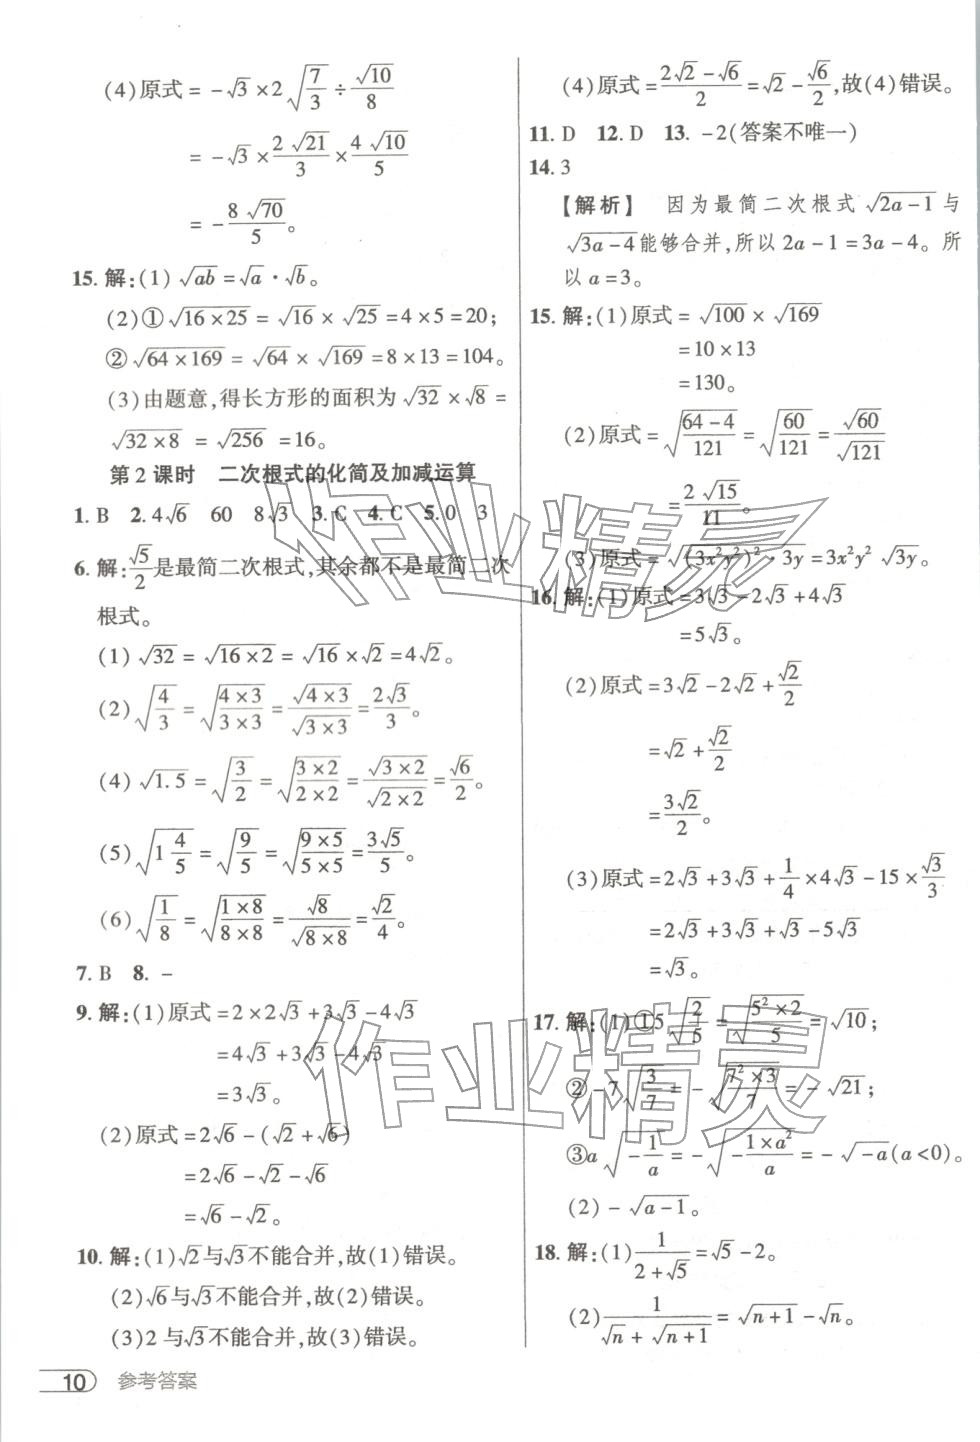 (4)原式=-√3×2√(7/3)÷√10/8
=-√3×2√21/3×4√10/5
=-8√70/5。
15.解:(1)√(ab)=√a·√b。
(2)①√(16×25)=√16×√25=4×5=20;
②√(64×169)=√64×√169=8×13=104。
(3)由题意,得长方形的面积为√32×√8=
√(32×8)=√256=16。
第2课时 二次根式的化简及加减运算
1.B 2.4√6 60 8√3 3.C 4.C 5.0 3
6.解:√5/2是最简二次根式,其余都不是最简二次
根式。
(1)√32=√(16×2)=√16×√2=4√2。
(2)√(4/3)=√((4×3)/(3×3))=√(4×3)/√(3×3)=2√3/3。
(4)√1.5=√(3/2)=√((3×2)/(2×2))=√(3×2)/√(2×2)=√6/2。
(5)√(1 4/5)=√(9/5)=√((9×5)/(5×5))=3√5/5。
(6)√(1/8)=√((1×8)/(8×8))=√8/√(8×8)=√2/4。
7.B 8.-
9.解:(1)原式=2×2√3+3√3-4√3
=4√3+3√3-4√3
=3√3。
(2)原式=2√6-(√2+√6)
=2√6-√2-√6
=√6-√2。
10.解:(1)√2与√3不能合并,故(1)错误。
(2)√6与√3不能合并,故(2)错误。
(3)2与√3不能合并,故(3)错误。
(4)原式=(2√2-√6)/2=√2-√6/2,故(4)错误。
11.D 12.D 13.-2(答案不唯一)
14.3
【解析】 因为最简二次根式√(2a-1)与
√(3a-4)能够合并,所以2a-1=3a-4。所
以a=3。
15.解:(1)原式=√100×√169
=10×13
=130。
(2)原式=√((64-4)/121)=√(60/121)=√60/√121
=2√15/11。
(3)原式=√((3x²y²)²·3y)=3x²y²√(3y)。
16.解:(1)原式=3√3-2√3+4√3
=5√3。
(2)原式=3√2-2√2+√2/2
=√2+√2/2
=3√2/2。
(3)原式=2√3+3√3+1/4×4√3-15×√3/3
=2√3+3√3+√3-5√3
=√3。
17.解:(1)①5√(2/5)=√((5²×2)/5)=√10;
②-7√(3/7)=-√((7²×3)/7)=-√21;
③a√(-1/a)=-√(-(1×a²)/a)=-√(-a)(a<0)。
(2)-√(a-1)。
18.解:(1)1/(2+√5)=√5-2。
(2)1/(√n+√(n+1))=√(n+1)-√n。
10 参考答案
作业精灵
作业精灵